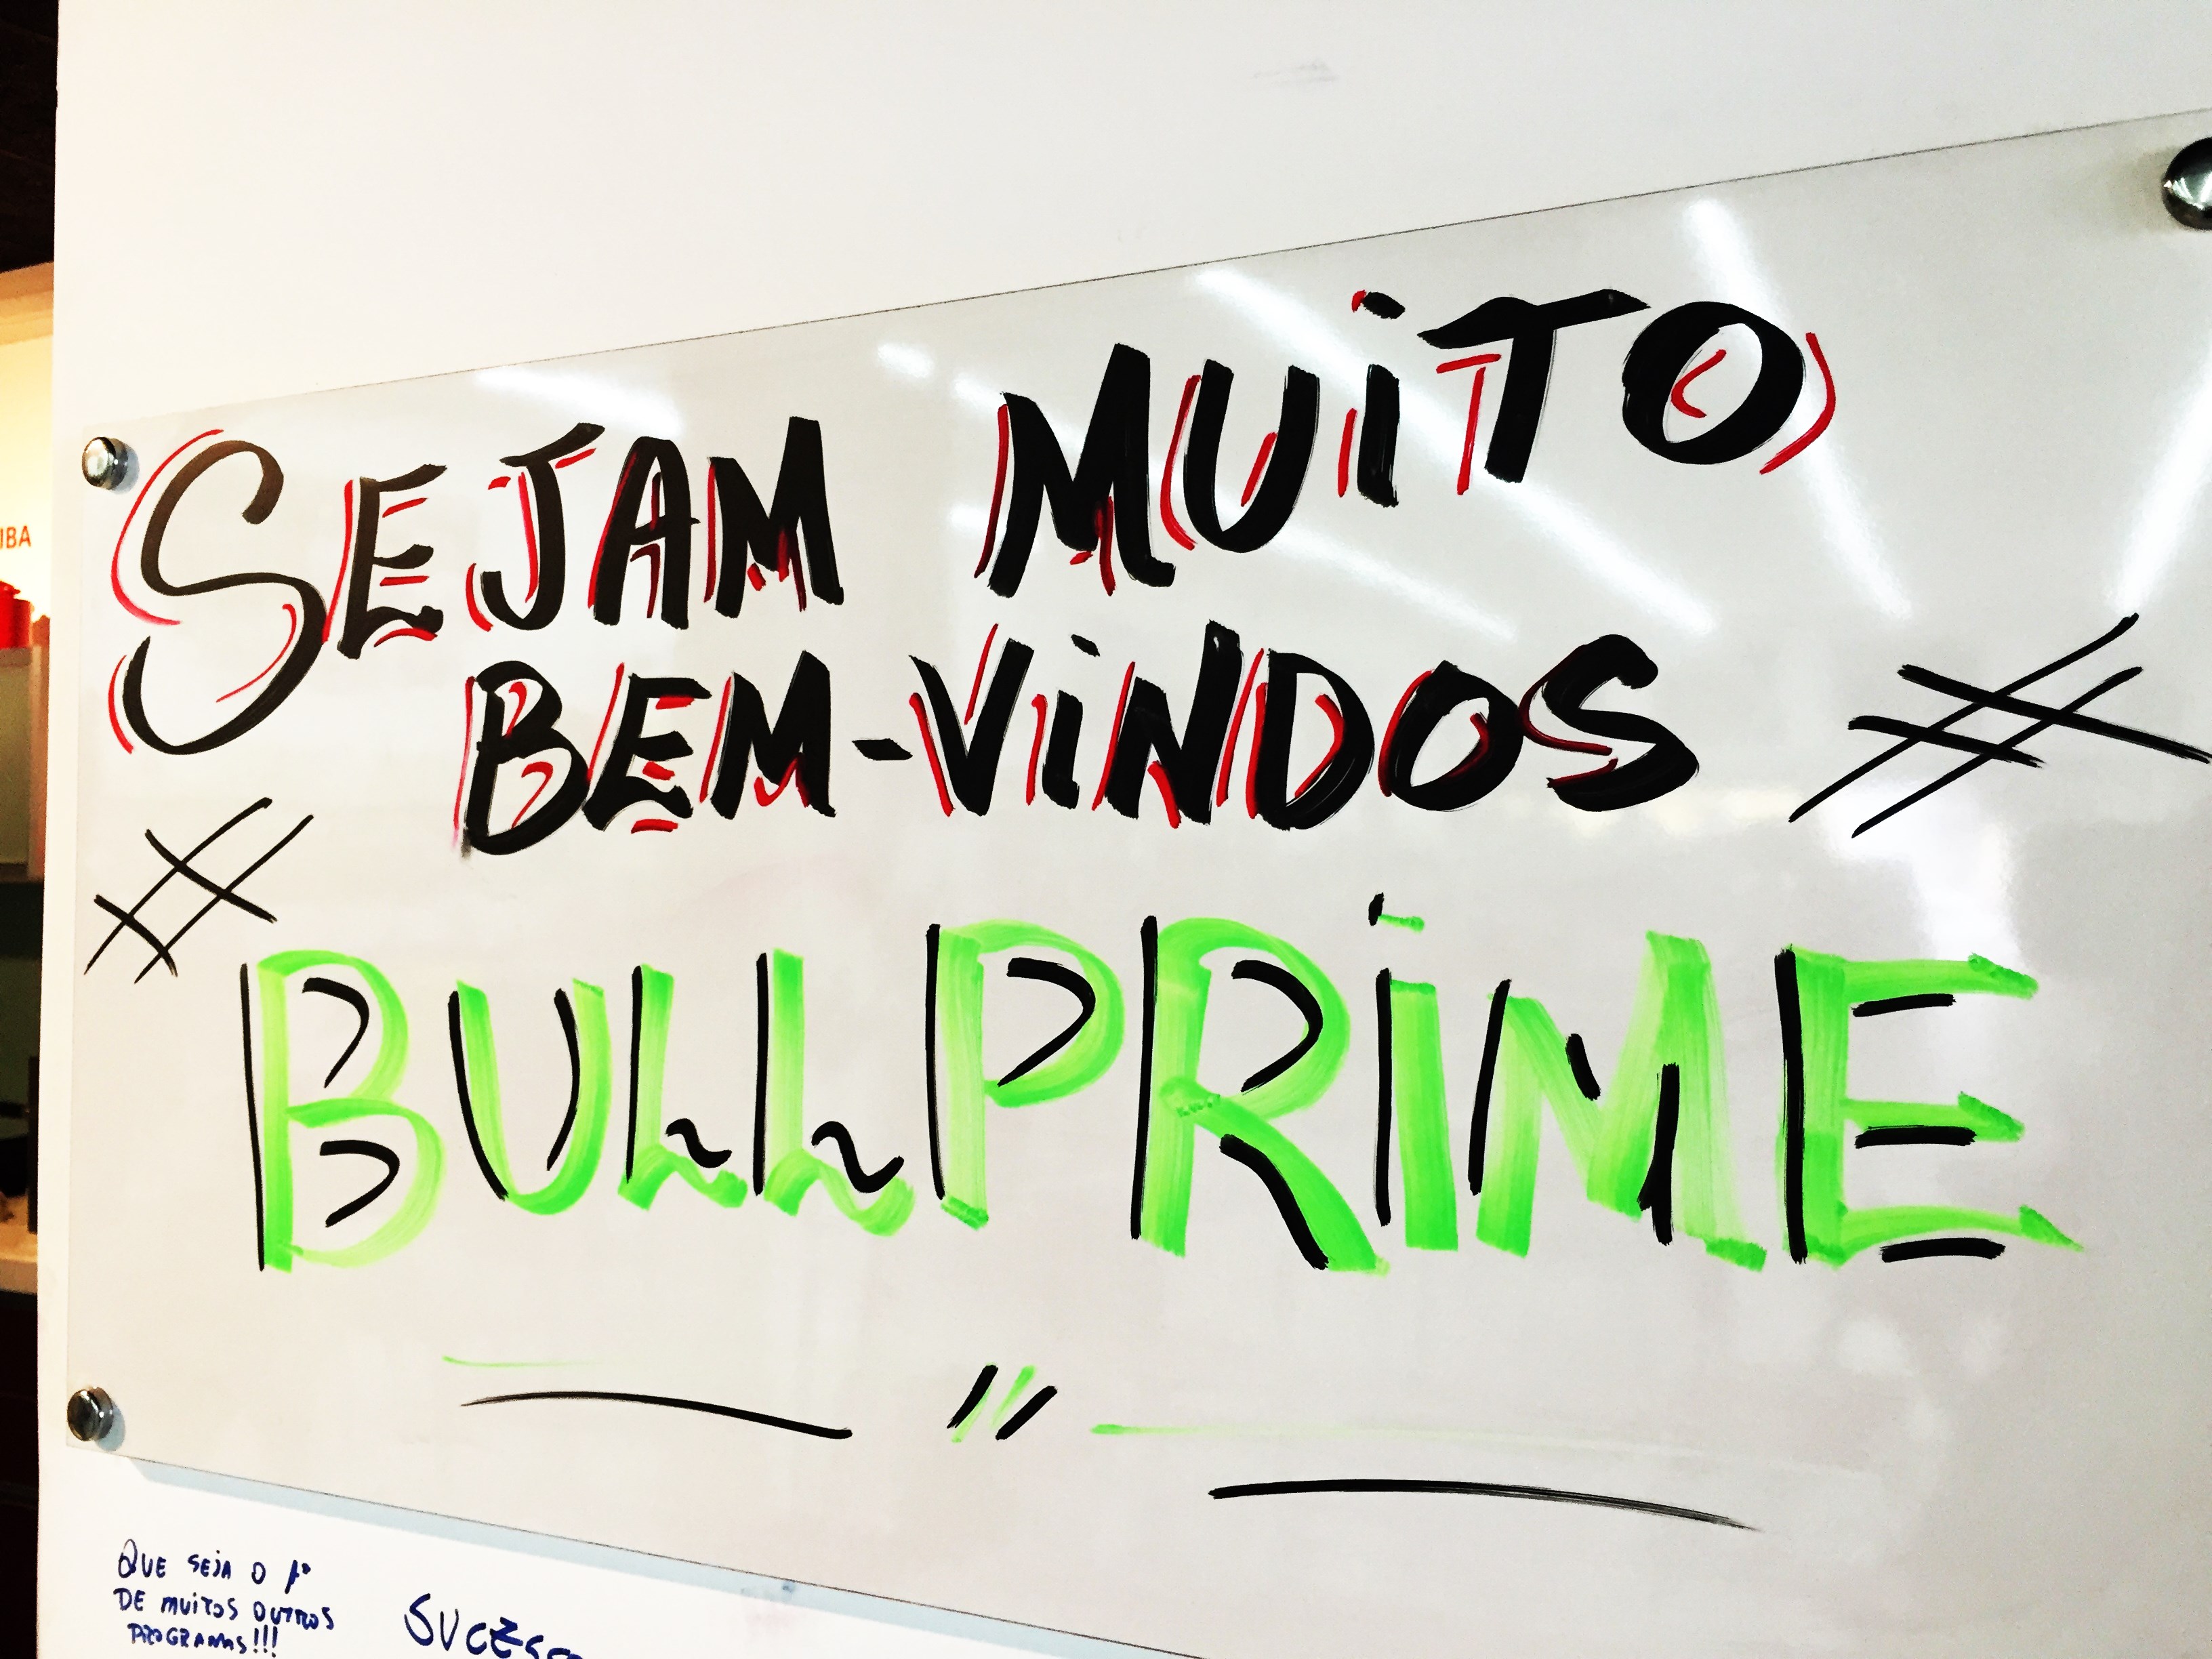 SEJAM MUiTO
BEM-ViNDOS
# #
BULLPRiME
QUE SEJA O 1º
DE MUiTOS OUTROS
PROGRAMAS!!!